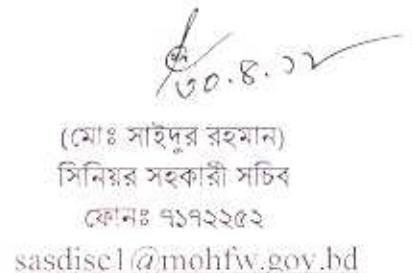 ৩০.৪.১২
(মোঃ সাইদুর রহমান)
সিনিয়র সহকারী সচিব
ফোনঃ ৭১৭২২৫২
sasdisc1@mohfw.gov.bd